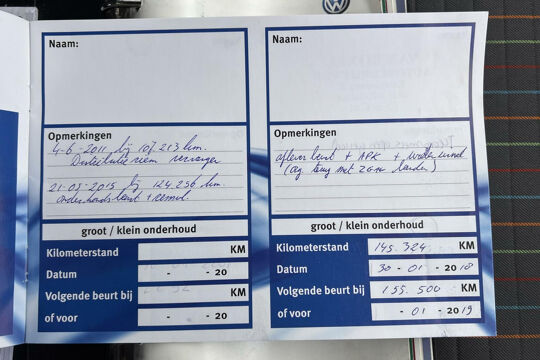 Naam:
Opmerkingen
4-6-2011 bij 107213 km.
Distributie riem vervangen
21-03-2015 bij 124.256 km.
onderhoudsbeurt +
groot / klein onderhoud
Kilometerstand KM
Datum - - 20
Volgende beurt bij KM
of voor - - 20
Naam:
Opmerkingen
aflever beurt + APK +
groot / klein onderhoud
Kilometerstand 145.324 KM
Datum 30 - 01 - 2018
Volgende beurt bij 155.500 KM
of voor - 01 - 2019